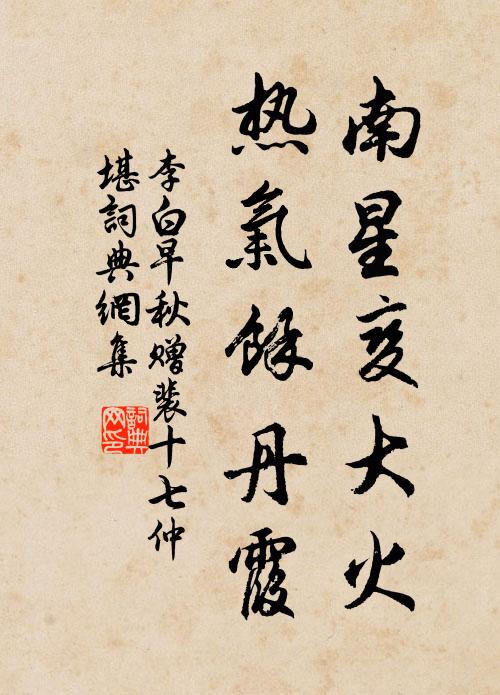 南星变大火
热氣餘丹霞
李白早秋赠裴十七仲
堪詞典網集
詞典
网印